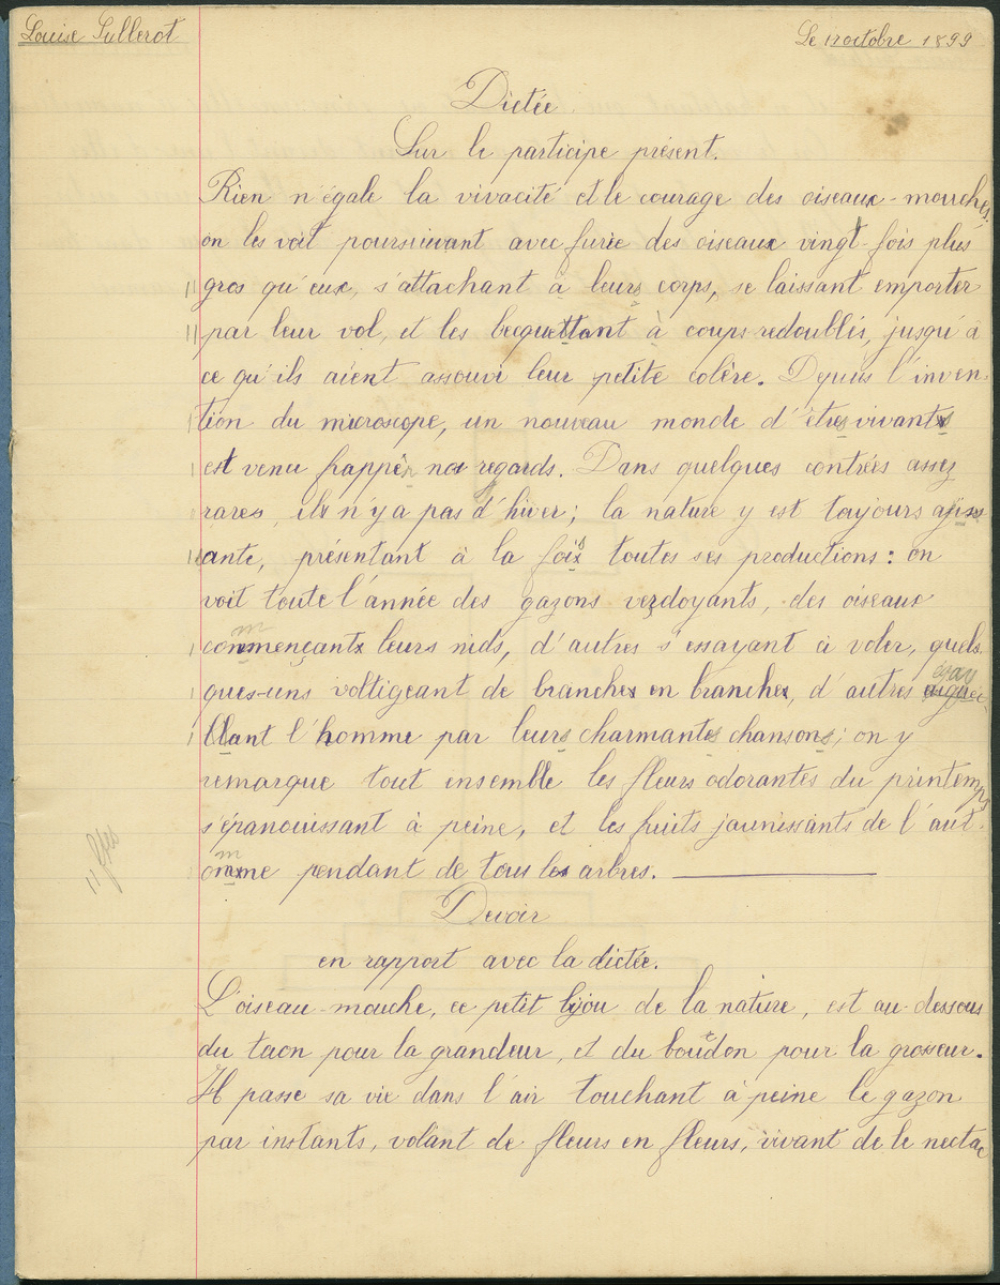 Louise Sullerot
Le 12 octobre 1899
Dictée
Sur le participe présent.
Rien n'égale la vivacité et le courage des oiseaux-mouches,
on les voit poursuivant avec furie des oiseaux vingt-fois plus
gros qu'eux, s'attachant à leurs corps, se laissant emporter
par leur vol, et les becquettant à coups redoublés, jusqu'à
ce qu'ils aient assouvi leur petite colère. Depuis l'inven-
tion du microscope, un nouveau monde d'êtres vivants
est venu frapper nos regards. Dans quelques contrées assez
rares, il n'y a pas d'hiver; la nature y est toujours agiss
ante, présentant à la fois toutes ses productions: on
voit toute l'année des gazons verdoyants, des oiseaux
commençants leurs nids, d'autres s'essayant à voler, quels
ques-uns voltigeant de branches en branches, d'autres égay
llant l'homme par leurs charmantes chansons; on y
remarque tout ensemble les fleurs odorantes du printemps
s'épanouissant à peine, et les fruits jaunissants de l'aut-
omne pendant de tous les arbres.
11 ftes
Devoir
en rapport avec la dictée.
L'oiseau-mouche, ce petit bijou de la nature, est au-dessous
du taon pour la grandeur, et du bourdon pour la grosseur.
Il passe sa vie dans l'air touchant à peine le gazon
par instants, volant de fleurs en fleurs, vivant de le nectar